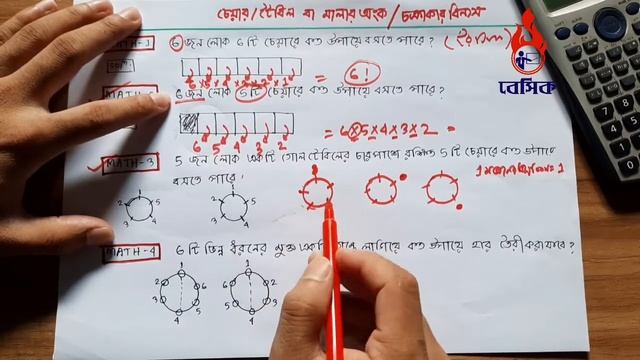 চেয়ার / টেবিল বা মালার অংক / চক্রাকার বিন্যাস
MATH-1 6 জন লোক 6 টি চেয়ারে কত উপায়ে বসতে পারে?
6 × 5 × 4 × 3 × 2 × 1 = 6!
বেসিক
6 জন লোক 5 টি চেয়ারে কত উপায়ে বসতে পারে?
6 5 4 3 2 = 6 × 5 × 4 × 3 × 2 =
MATH-3 5 জন লোক একটি গোল টেবিলের চারপাশে রক্ষিত 5 টি চেয়ারে কত উপায়ে
বসতে পারে?
1 2 3 4 5
1 2 3 4 5
MATH-4 6 টি ভিন্ন ধরনের মুক্তা লাগিয়ে কত উপায়ে হার তৈরী করা যাবে?
1 2 3 4 5 6
1 2 3 4 5 6